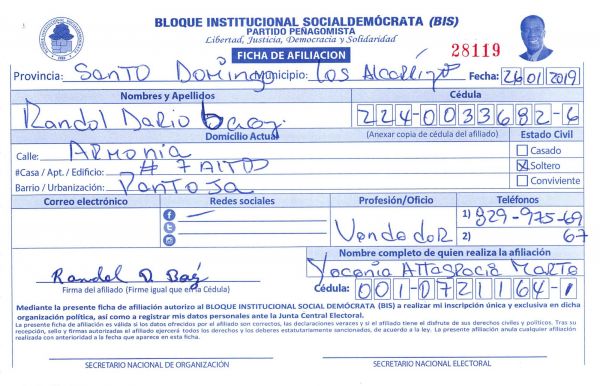 BLOQUE INSTITUCIONAL SOCIALDEMÓCRATA (BIS)
PARTIDO PEÑAGOMISTA
Libertad, Justicia, Democracia y Solidaridad
FICHA DE AFILIACION
28119
Provincia: Santo Domingo Municipio: Los Alcarrizo Fecha: 26/01/2019
Nombres y Apellidos
Cédula
Randol Dario Baez
224-0033682-6
Domicilio Actual
(Anexar copia de cédula del afiliado)
Estado Civil
Calle: Armonia
Casado
#Casa / Apt. / Edificio: # 7 Altos
Soltero
Barrio / Urbanización: Pantoja
Conviviente
Correo electrónico
Redes sociales
Profesión/Oficio
Teléfonos
Vendedor
1) 829-975-69
2) 67
Nombre completo de quien realiza la afiliación
Randol D. Baez
Yocania Altagracia Marte
Firma del afiliado (Firme igual que en la Cédula)
Cédula: 001-0721164-1
Mediante la presente ficha de afiliación autorizo al BLOQUE INSTITUCIONAL SOCIAL DEMÓCRATA (BIS) a realizar mi inscripción única y exclusiva en dicha
organización política, así como a registrar mis datos personales ante la Junta Central Electoral.
La presente ficha de afiliación es válida si los datos ofrecidos por el afiliado son correctos, las declaraciones veraces y si el afiliado tiene el disfrute de sus derechos civiles y políticos. Tras su
recepción, sello y firmas autorizadas el afiliado ejercerá todos los derechos y los deberes estatutariamente sancionados, de acuerdo a la ley. La presente afiliación anula cualquier afiliación
realizada con anterioridad a la fecha que aparece en esta ficha.
SECRETARIO NACIONAL DE ORGANIZACIÓN
SECRETARIO NACIONAL ELECTORAL